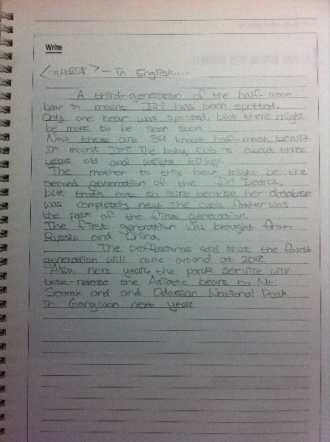 Write
- in English....
A third-generation of the half moon
bear in mount Jiri has been spotted.
Only one bear was spotted, but there might
be more to be seen soon.
Now there are 39 known half-moon bears
in mount Jiri. The baby cub is about three
years old and weighs 60 kg.
The mother to this bear might be the
second generation of the Jiri bears,
but that's not so sure because her database
was completely new. The cub's father was
the part of the first generation.
The first generation was brought from
Russia and China.
The professionals said that the fourth
generation will come around at 2018
Also, next year, the park service will
release the Asiatic bears to Mt.
Seorak and and Odaesan National Park
in Gangwon next year